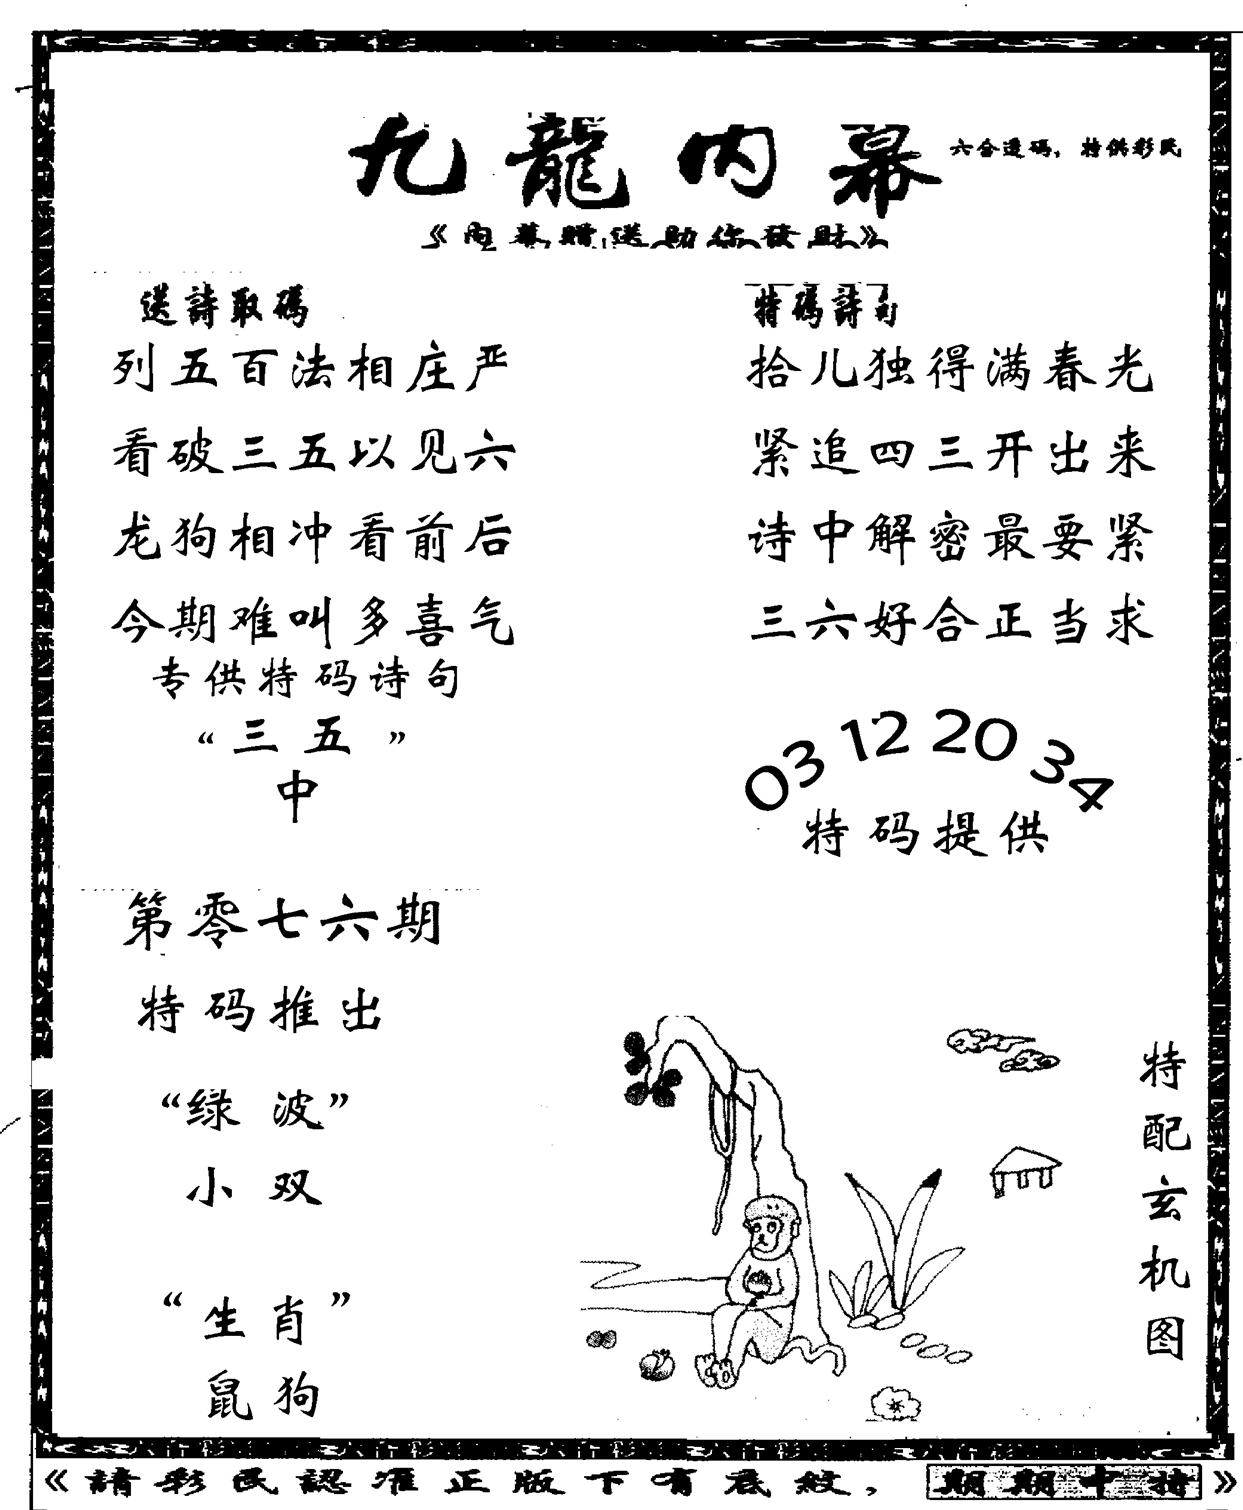 九龍内幕
六合透码，特供彩民
《内幕贈送助你發財》
送詩取碼
列五百法相庄严
看破三五以见六
龙狗相冲看前后
今期难叫多喜气
专供特码诗句
“三五”
中
特碼詩句
拾儿独得满春光
紧追四三开出来
诗中解密最要紧
三六好合正当求
03 12 20 34
特码提供
第零七六期
特码推出
“绿波”
小双
“生肖”
鼠狗
特配玄机图
《請彩民認准正版下有底紋，期期中特》